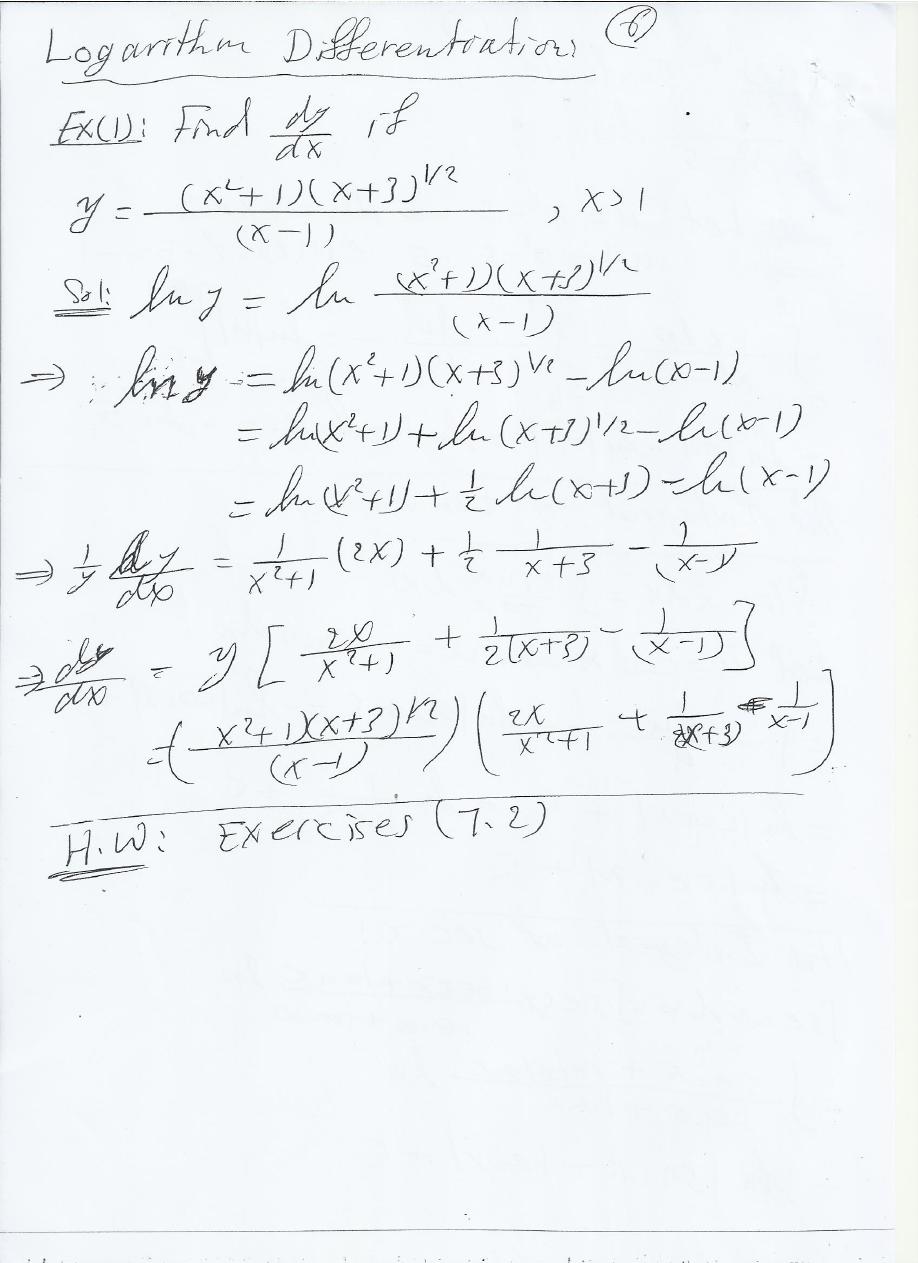 Logarithm Differentiation: 6
Ex(1): Find dy/dx if
y = (x²+1)(x+3)^1/2 / (x-1) , x>1
Sol: ln y = ln (x²+1)(x+3)^1/2 / (x-1)
⇒ ln y = ln(x²+1)(x+3)^1/2 - ln(x-1)
= ln(x²+1) + ln(x+3)^1/2 - ln(x-1)
= ln(x²+1) + 1/2 ln(x+3) - ln(x-1)
⇒ 1/y dy/dx = 1/x²+1 (2x) + 1/2 1/x+3 - 1/(x-1)
⇒ dy/dx = y [ 2x/x²+1 + 1/2(x+3) - 1/(x-1) ]
= ( x²+1)(x+3)^1/2 / (x-1) ) ( 2x/x²+1 + 1/2(x+3) - 1/x-1 ]
H.W: Exercises (7.2)